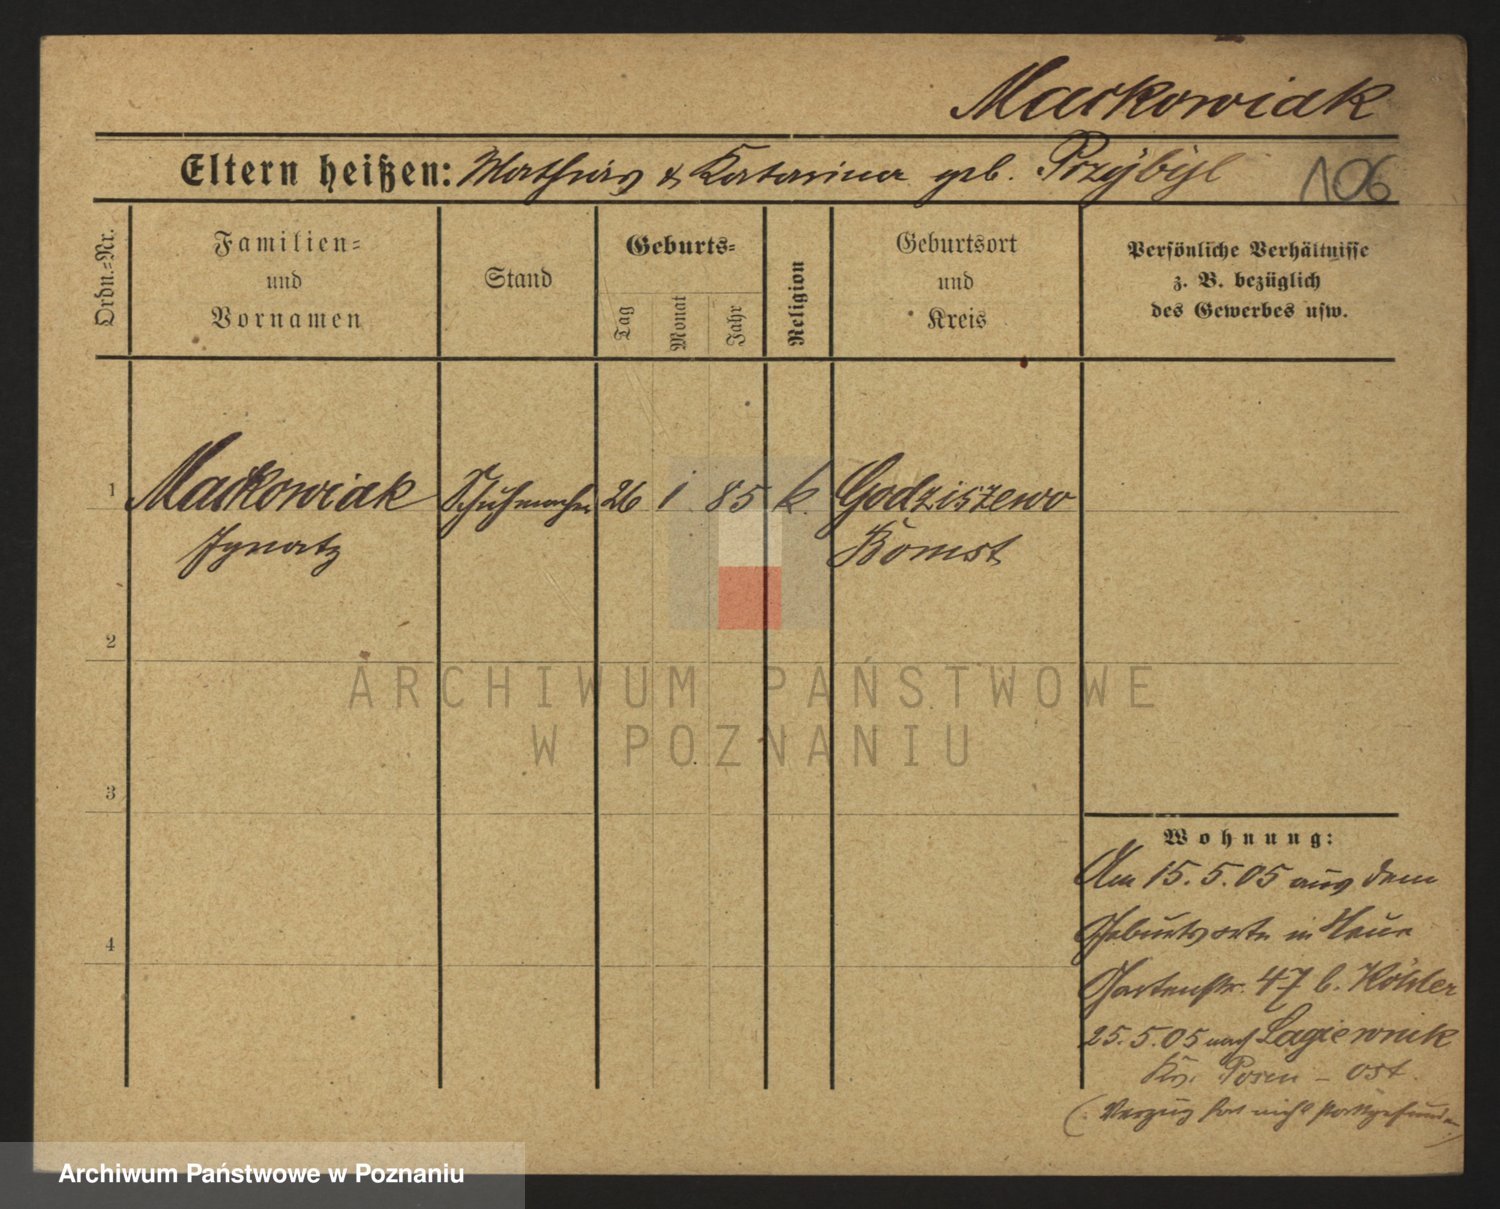 Markowiak
Eltern heißen: Mathias & Katarina geb. Przybyl
106
Ordn.=Nr.
Familien=
und
Vornamen
Stand
Geburts=
Tag
Monat
Jahr
Religion
Geburtsort
und
Kreis
Persönliche Verhältnisse
z. B. bezüglich
des Gewerbes usw.
1 Markowiak Schuhmacher 26 1 85 k. Godziszewo
Ignatz Bomst
2
ARCHIWUM PAŃSTWOWE
W POZNANIU
3
Wohnung:
Am 15.5.05 aus dem
Geburtsorte in Neue
4
Gartenstr. 47 b. Köhler
25.5.05 nach Lagiewnik
Krs. Posen - Ost.
(Verzug hat nicht stattgefunden)
Archiwum Państwowe w Poznaniu